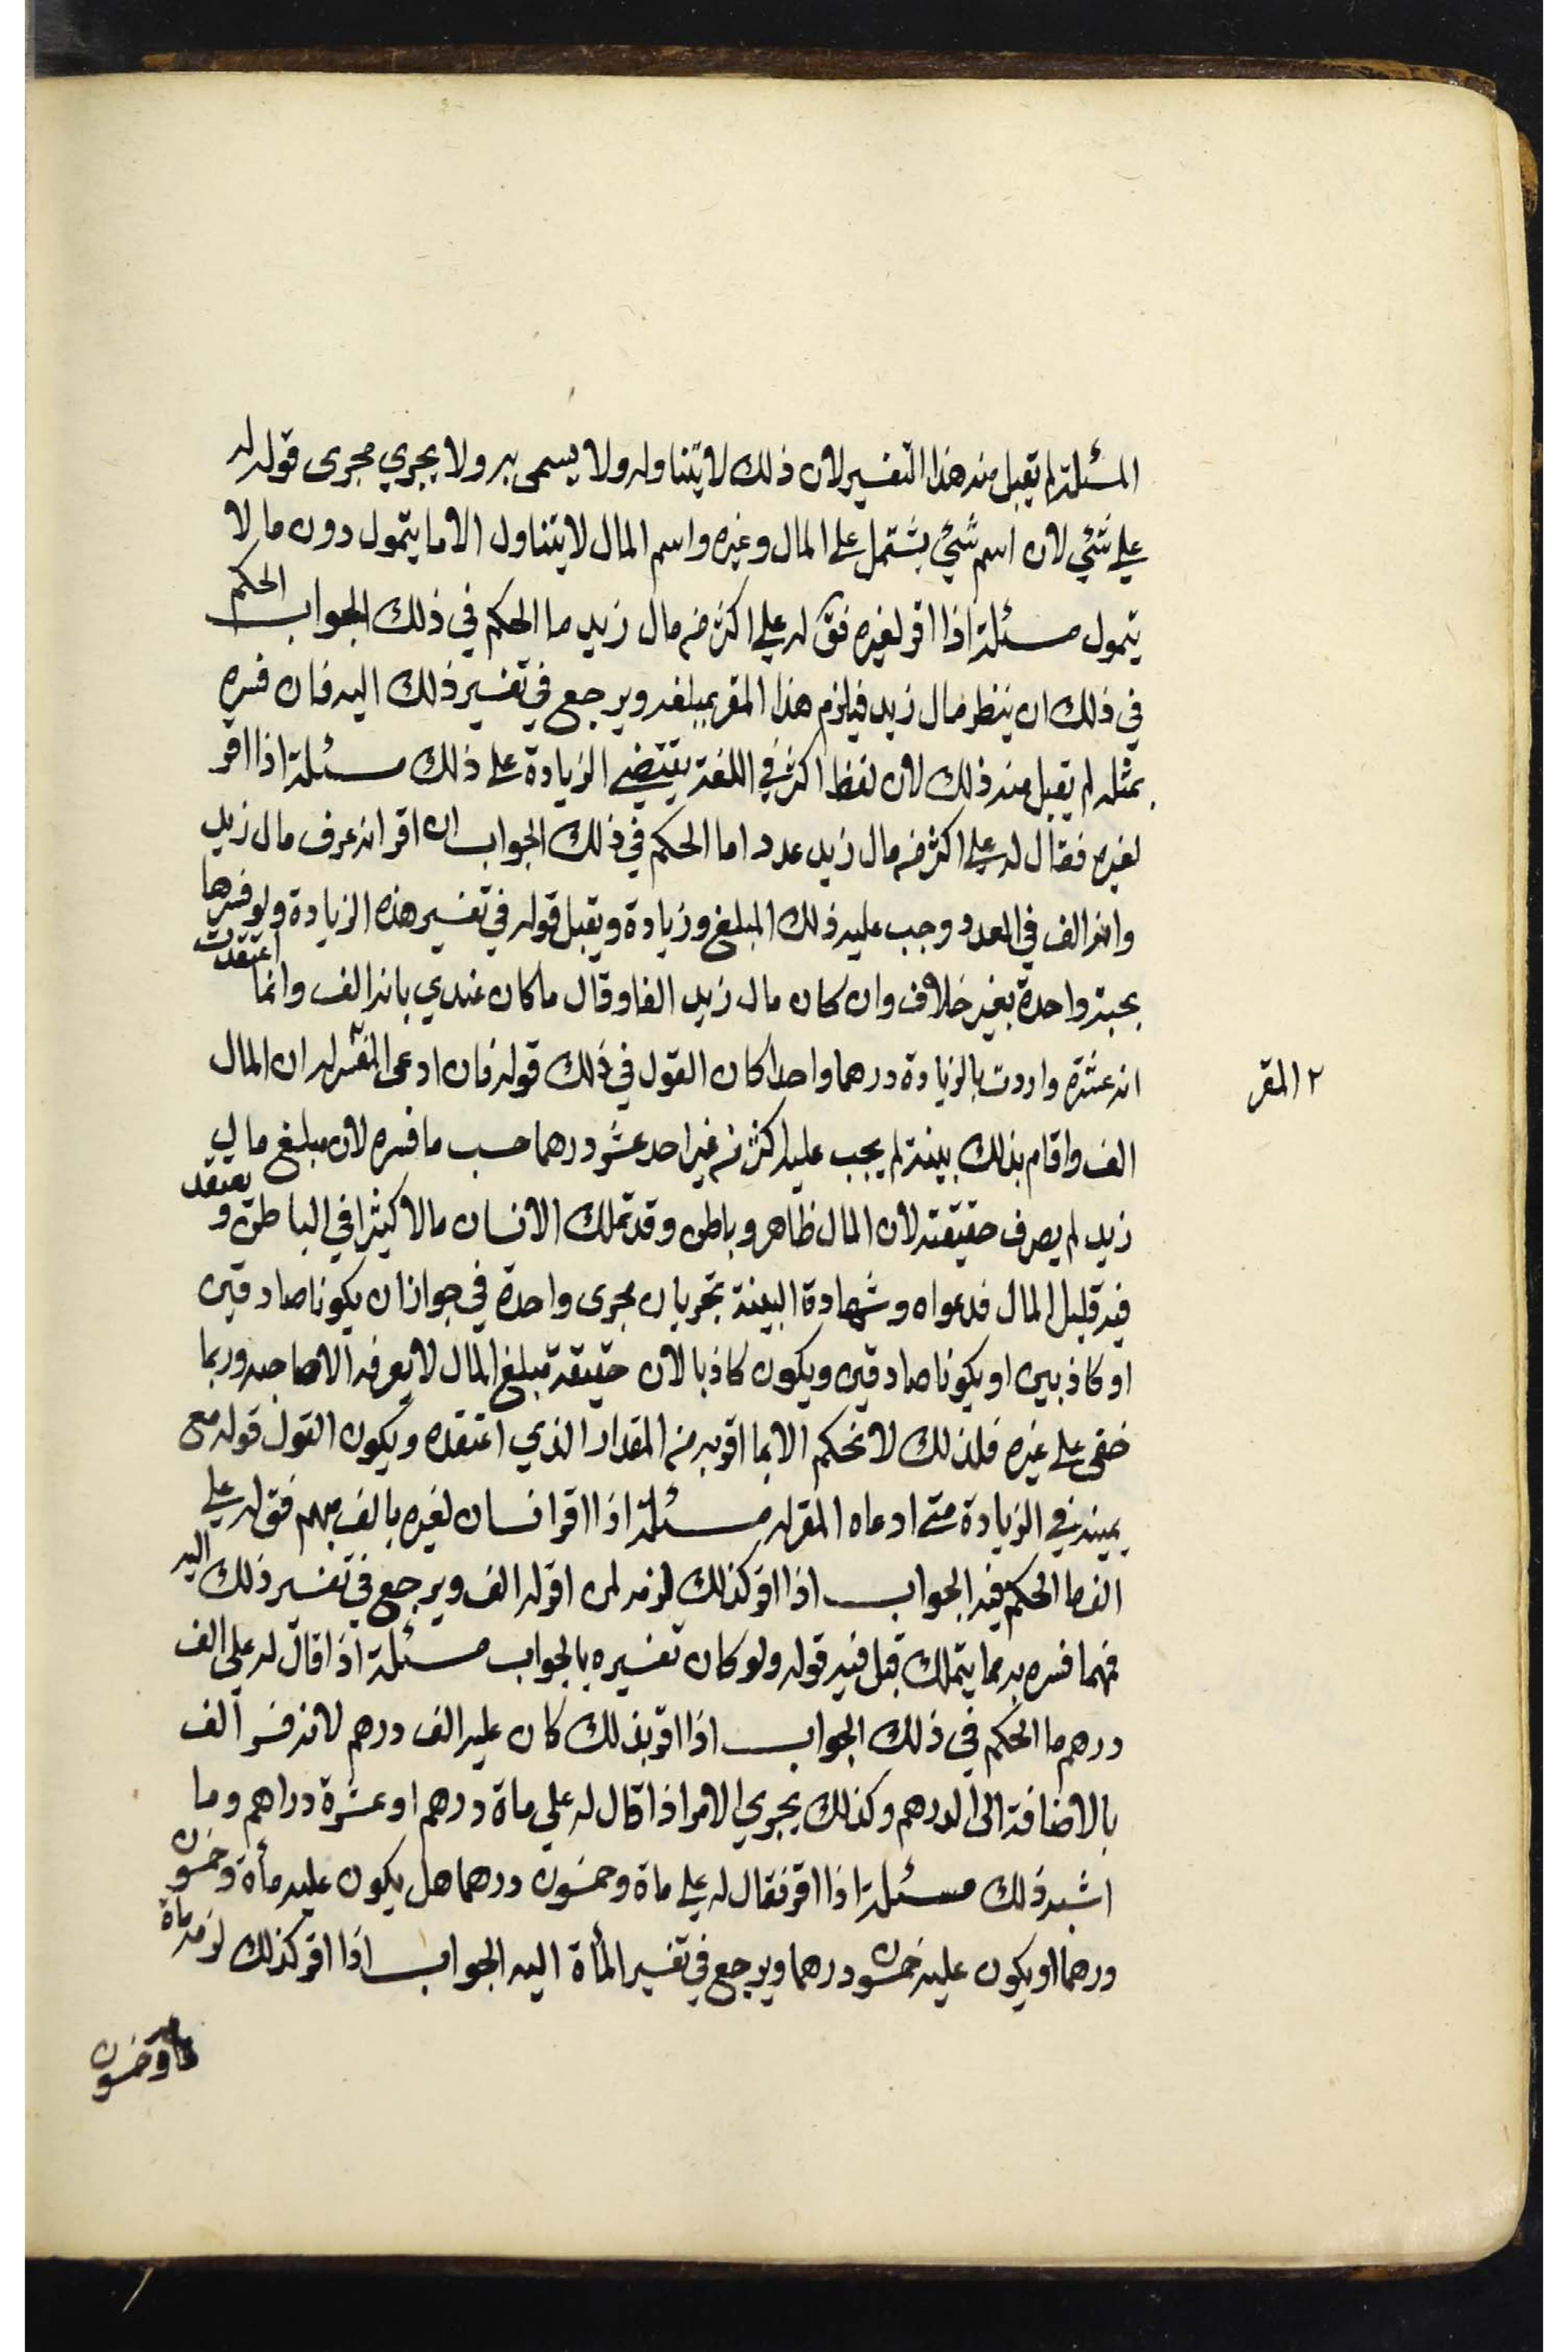 المسئلة لم تقبل منه هذا التفسير لان ذلك لا يتناوله ولا يسمى به ولا يجري مجرى قوله له
علي شئي لان اسم شئي يشتمل على المال وغيره واسم المال لا يتناول الا ما يتمول دون ما لا
يتمول مسئلة اذا اقر لغيره فق له علي اكثر من مال زيد ما الحكم في ذلك الجواب الحكم
في ذلك ان ينظر مال زيد فيلزم هذا المقر بمبلغه ويرجع في تفسير ذلك اليه فان فسره
بمثله لم يقبل منه ذلك لان لفظ اكثر في اللغة يقتضي الزيادة على ذلك مسئلة اذا اقر
لغيره فقال له علي اكثر من مال زيد عددا ما الحكم في ذلك الجواب ان اقر انه عرف مال زيد
وانه الف في العدد وجب عليه ذلك المبلغ وزيادة ويقبل قوله في تفسير هذه الزيادة ولو فسرها
بحبة واحدة بغير خلاف وان كان مال زيد الفا وقال ما كان عندي بانه الف وانما اعتقدت
انه عشرة واردت بالزيادة درهما واحدا كان القول في ذلك قوله فان ادعى المقر له ان المال
٢ المقر
الف واقام بذلك بينة لم يجب عليه اكثر من غير احد عشر درهما حسب ما فسره لان مبلغ مال
زيد لم يصرف حقيقته لان المال ظاهر وباطن وقد تملك الانسان مالا كثيرا في الباطن و يعتقد
فيه قليل المال فدعواه وشهادة البينة تجريان مجرى واحدة في جواز ان يكونا صادقين
او كاذبين او يكونا صادقين ويكون كاذبا لان حقيقة مبلغ المال لا يعرفه الا صاحبه وربما
خفى على غيره فلذلك لا نحكم الا بما اقر به من المقدار الذي اعتقده ويكون القول قوله مع
يمينه في الزيادة متى ادعاه المقر له مسئلة اذا اقر انسان لغيره بالف مبهم فق له علي
الف ما الحكم فيه الجواب اذا اقر كذلك لزمه لمن اقر له الف ويرجع في تفسير ذلك اليه
فمهما فسره به مما يتملك قبل فيه قوله ولو كان تفسيره بالجواب مسئلة اذا قال له علي الف
درهم ما الحكم في ذلك الجواب اذا اقر بذلك كان عليه الف درهم لانه فسر الف
بالاضافة الى الدرهم وكذلك يجري الامر اذا قال له علي ماة درهم او عشرة دراهم وما
اشبه ذلك مسئلة اذا اقر فقال له علي ماة وخمسون درهما هل يكون عليه مأة وخمسون
درهما او يكون عليه خمسون درهما ويرجع في تفسير المأة اليه الجواب اذا اقر كذلك لزمه ماة
وخمسون